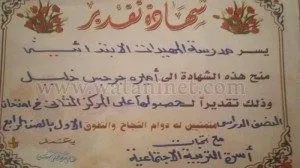 شهادة تقدير
يسر مدرسة المهيدات الابتدائية
منح هذه الشهادة الى / مارى جرجس خليل
وذلك تقديراً لحصولها على المركز الثانى فى امتحان
النصف الدراسى متمنين له دوام النجاح والتفوق الاول بالصف الرابع
مع تحيات
أسرة التربية الاجتماعية
يعتمد
www.wataninet.com